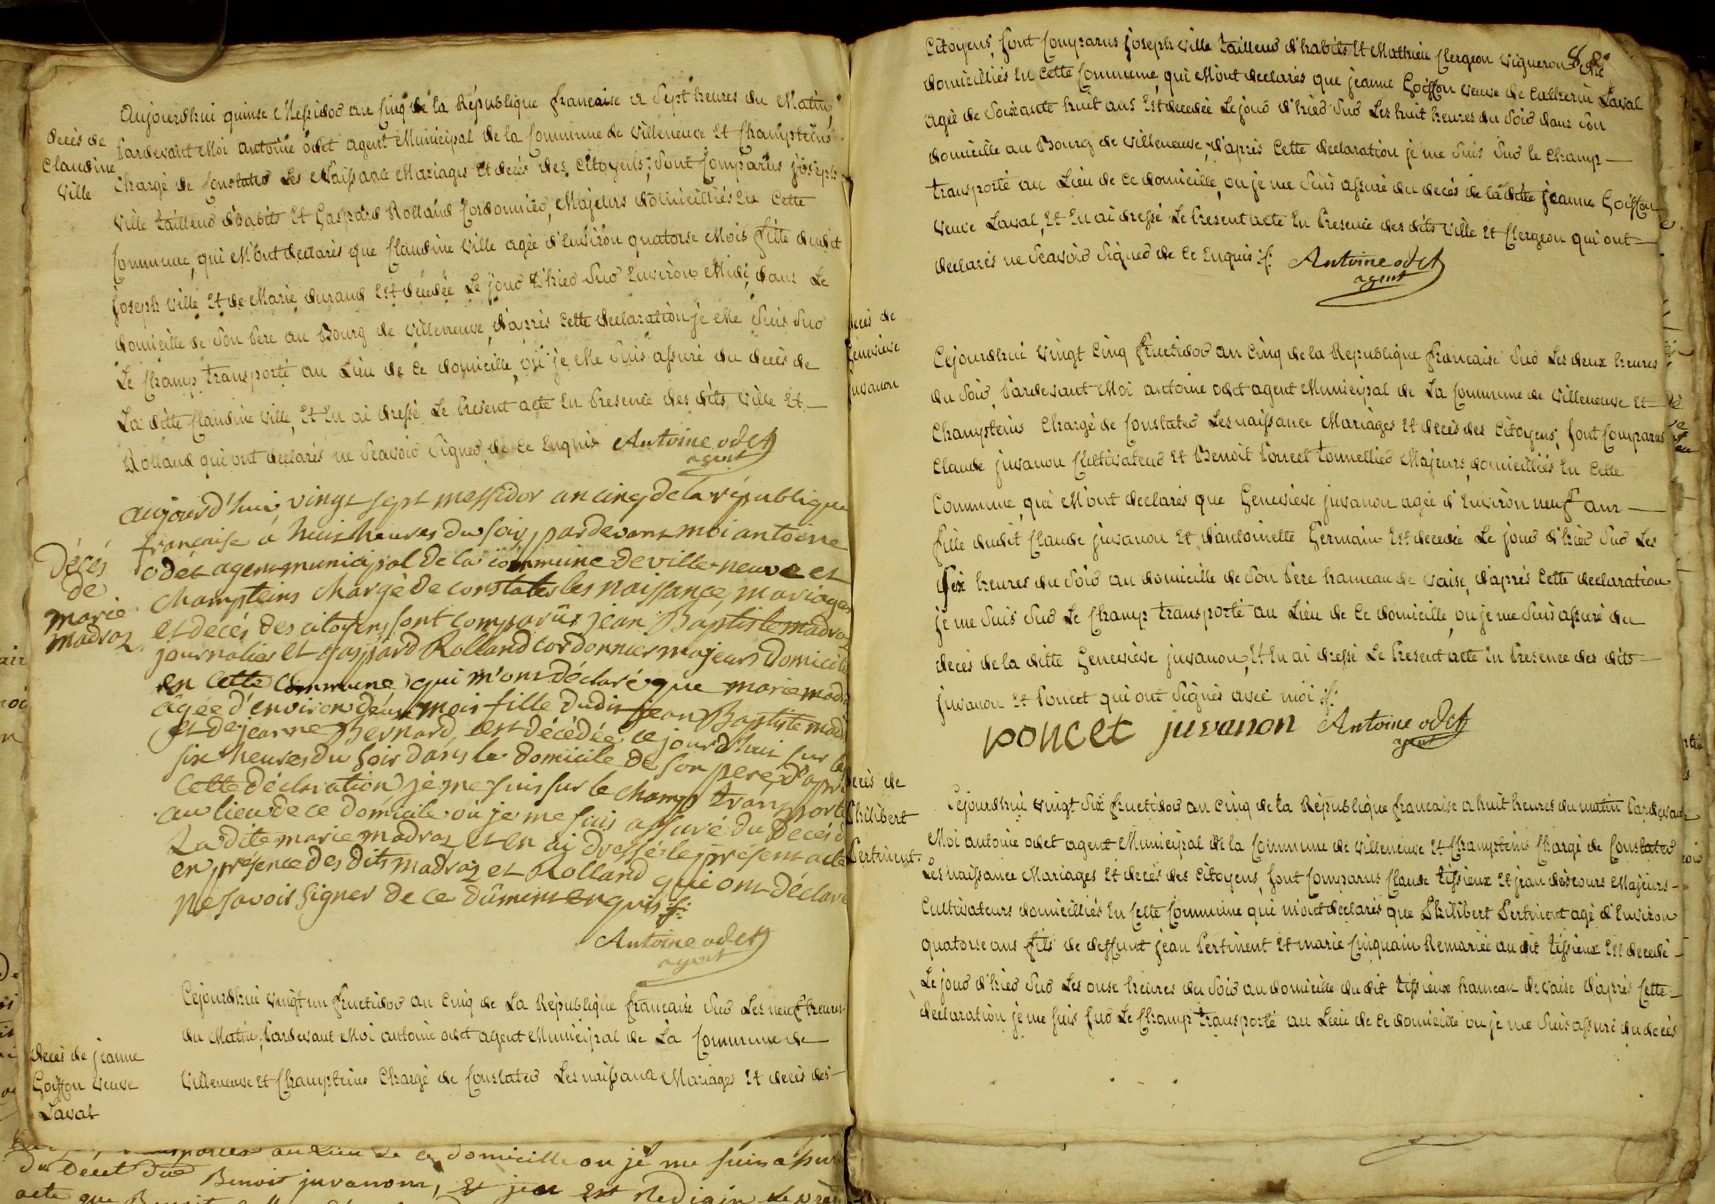 Aujourdhui quinse Messidor an Cinq de la République francaise a Sept heures du Matin,
decès de
Claudine
Ville
Pardevant Moi antoine odet agent Municipal de la Commune de Villeneuve Et Champteins
Chargé de Constater Les Naissance Mariages Et decès des Citoyens, Sont Comparus joseph
Ville tailleur d'habits Et Gaspard Rolland Cordonnier, Majeurs domicilliés En Cette
Commune, qui M'ont declarés que Claudine Ville agée d'Environ quatorse Mois fille dudit
joseph Ville Et de Marie durand Est décédée Le jour d'hier Sur Environ Midi, dans Le
domicille de Son Pere au Bourg de Villeneuve, d'après Cette declaration je Me Suis Sur
Le Champ transporté au Lieu de Ce domicille, ou je Me Suis assuré du decès de
La ditte Claudine Ville, Et En ai dressé Le Present acte En Presence des dits Ville Et
Rolland qui ont declarés ne Scavoir Signer de Ce Enquis Antoine odet
agent
aujourd'hui vingt sept messidor an cinq de la république
française a huit heures du soir, pardevant moi antoine
Décés
de
marie
madroz
odet agent municipal de la commune de villeneuve et
Champteins chargé de constater les naissance, mariages
et décés des citoyens, sont comparus jean Baptiste madroz
journalier et gaspard Rolland cordonnier majeurs domicil
en cette commune qui m'ont déclaré que marie mad
agée d'environ deux mois fille dudit jean Baptiste mad
et de jeanne Bernard, est décédée ce jourd'hui sur les
six heures du soir dans le domicile de son pere d'apr
cette déclaration je me suis sur le champ transporté
au lieu de ce domicile où je me suis assuré du décés d
La dite marie madroz et en ai dressé le présent acte
en présence des dits madroz et Rolland qui ont déclaré
ne savoir signer de ce dûment enquis ./.
Antoine odet
agent
Cejourdhui vingt un fructidor an Cinq de La République francaise Sur Les neuf heures
du Matin, Pardevant Moi antoine odet agent Municipal de La Commune de
decès de jeanne
Goiffon veuve
Laval
Villeneuve Et Champteins Chargé de Constater Les naissance Mariages Et decès des
au Lieu de ce domicille ou je me suis assur
du Decet due Benoit juvanon, Et jen Est Redigér le pré
Citoyens, Sont Comparus joseph Ville tailleur d'habits Et Mathieu Clergeon Vigneron
domicilliés En Cette Commune, qui M'ont declarés que jeanne Goiffon Veuve de Catherin Laval
agée de Soixante huit ans Est decedée Le jour d'hier Sur Les huit heures du Soir dans Son
domicille au Bourg de Villeneuve, d'après Cette declaration je me Suis Sur le Champ
transporté au Lieu de Ce domicille, ou je me Suis assuré du decès de la ditte jeanne Goiffon
Veuve Laval, Et En ai dressé Le Present acte En Presence des dits Ville Et Clergeon qui ont
declarés ne Scavoir Signer de Ce Enquis ./. Antoine odet
agent
decès de
Genevieve
juvanon
Cejourdhui Vingt Cinq fructidor an Cinq de la République francaise Sur Les deux heures
du Soir, Pardevant Moi antoine odet agent Municipal de La Commune de Villeneuve Et
Champteins Chargé de Constater Les naissance Mariages Et decès des Citoyens, Sont Comparus
Claude juvanon Cultivateur Et Benoit Poncet tonnellier Majeurs, domicilliés En Cette
Commune, qui M'ont declarés que Genevieve juvanon agée d'Environ neuf ans
fille dudit Claude juvanon Et d'antoinette Germain Est decedée Le jour d'hier Sur Les
Six heures du Soir au domicille de Son Pere hameau de Vaise, d'après Cette declaration
je me Suis Sur Le Champ transporté au Lieu de Ce domicille, ou je me Suis assuré du
decès de la ditte Genevieve juvanon, Et En ai dressé Le Present acte En Presence des dits
juvanon Et Poncet qui ont Signés avec moi ./.
poncet juvanon Antoine odet
agent
decès de
Philibert
Pertinent
Cejourdhui Vingt Six fructidor an Cinq de la République francaise a huit heures du matin Pardevant
Moi antoine odet agent Municipal de la Commune de Villeneuve Et Champteins Chargé de Constater
Les naissance Mariages Et decès des Citoyens, Sont Comparus Claude tissieux Et jean descours Majeurs
Cultivateurs domicilliés En Cette Commune qui m'ont declarés que Philibert Pertinent agé d'Environ
quatorse ans fils de deffunt jean Pertinent Et marie Cinquain Remariée au dit tissieux Est decedé
Le jour d'hier Sur Les onse heures du Soir au domicille du dit tissieux hameau de Vaise d'après Cette
declaration je me Suis Sur Le Champ transporté au Lieu de Ce domicille ou je me Suis assuré du decès